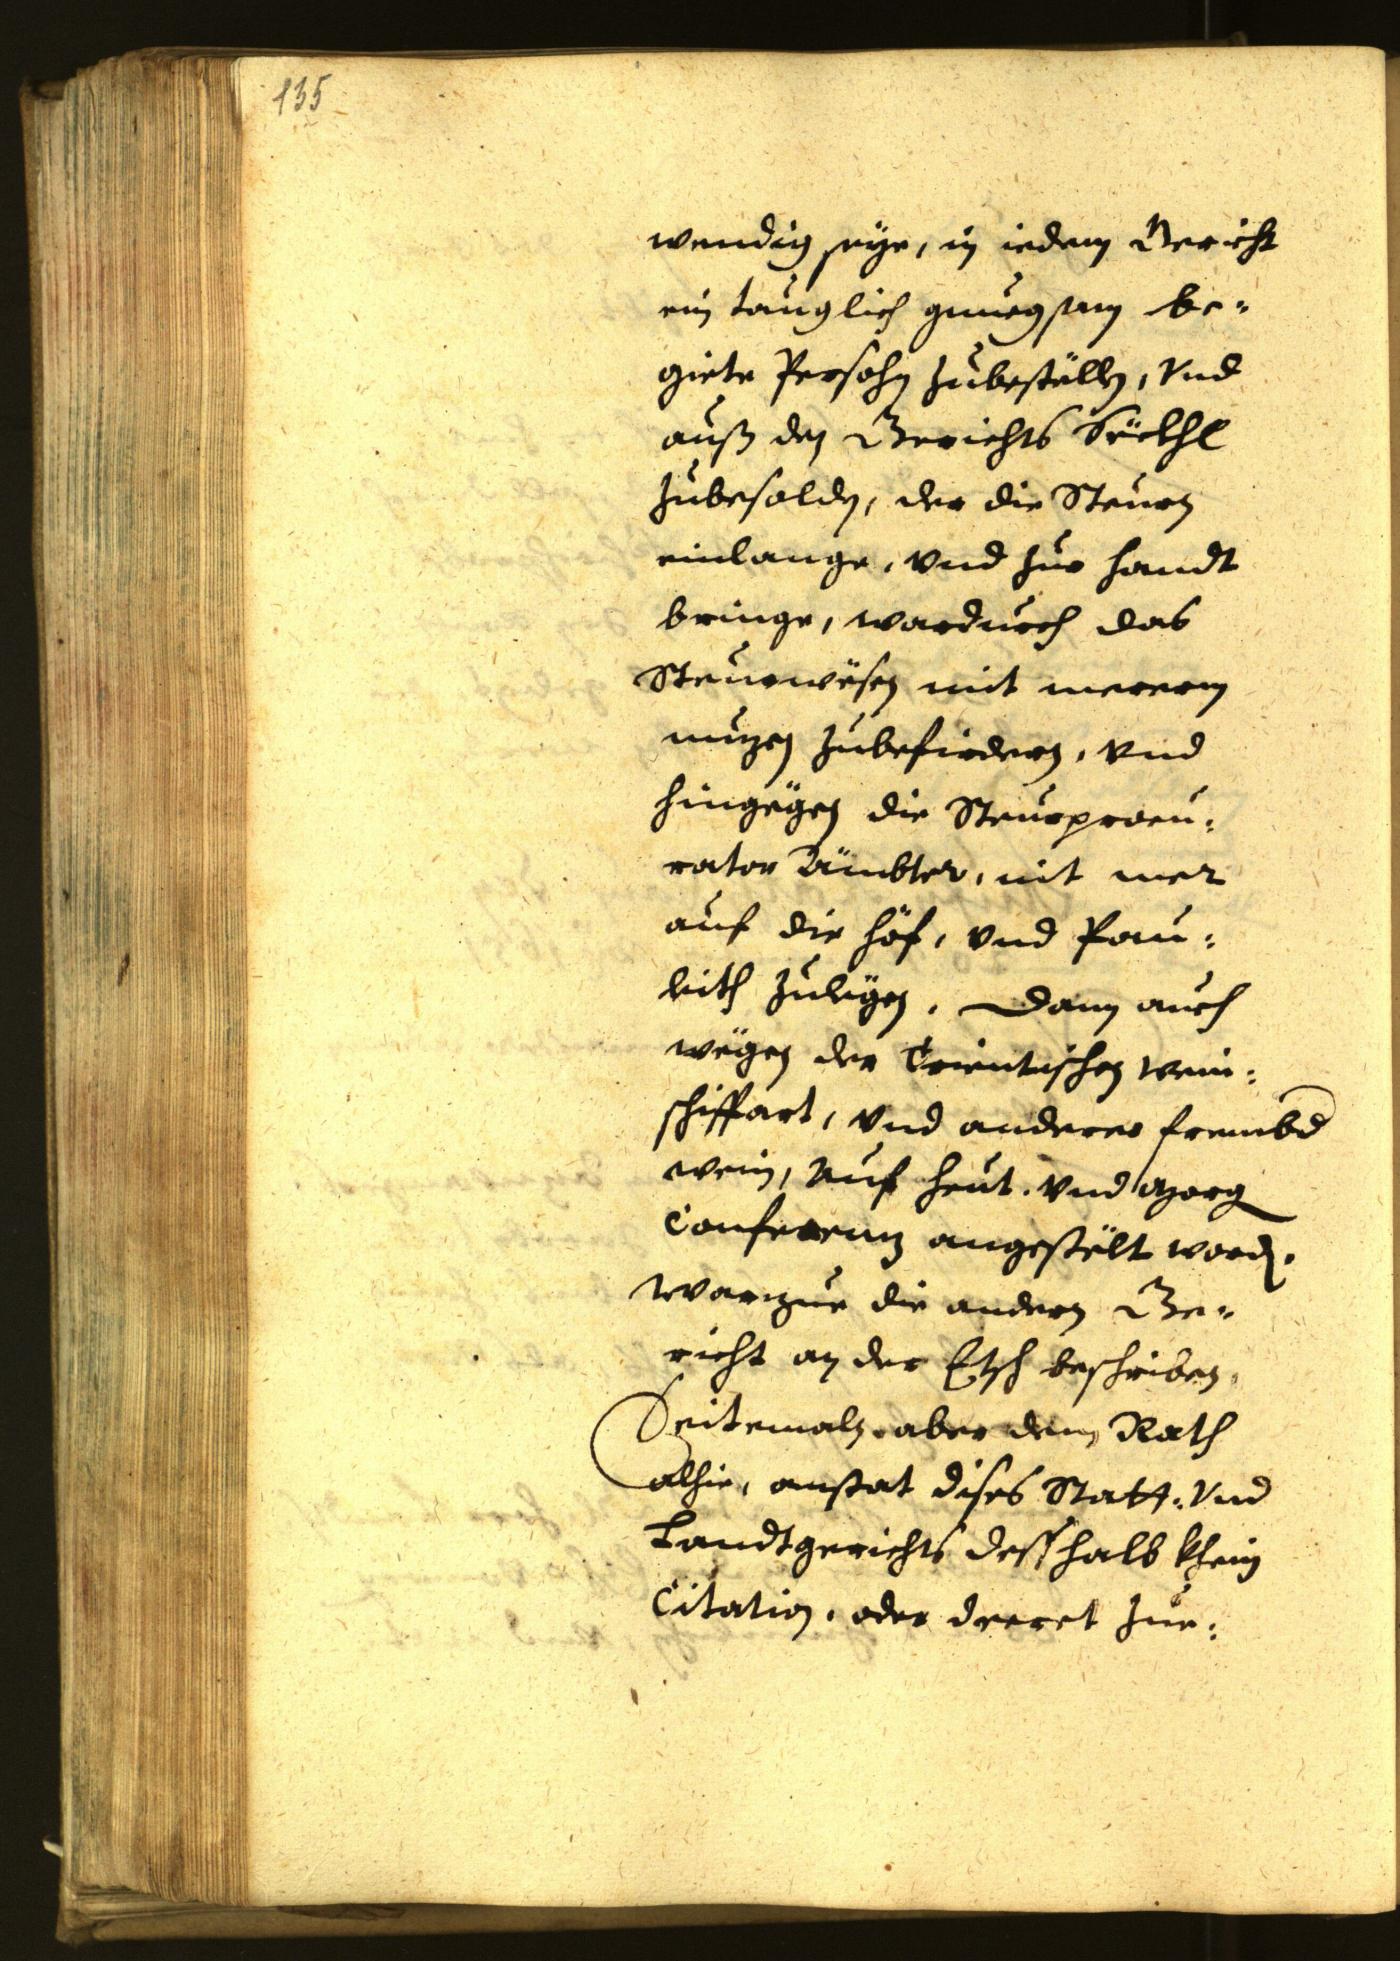 135
wendig seye, in iedem Gericht
ein tauglich gnuegsam be-
giete Persohn zubeställn, Vnd
auß den Gerichts Söckhl
zubesoldn, der die Steurn
einlange, Vnd zur handt
bringe, wardurch das
Steurwësen mit mererm
nuzen zubefirdern, Vnd
hingëgen die Steurprocu-
rator Ämbter, nit mer
auf die höf, Vnd Pau-
leith zulëgen, Dann auch
wëgen der Trientischen wein-
schiffart, Vnd anderer frembd
wein, Auf heut. Vnd Morg
Conferenz angestëlt wordn.
Warzue die andern Ge-
richt an der Etsch beschriben,
Seitemaln aber dem Rath
alhie, anstat dises Statt- Vnd
Landtgerichts desshalb khein
Citation, oder decret zue-